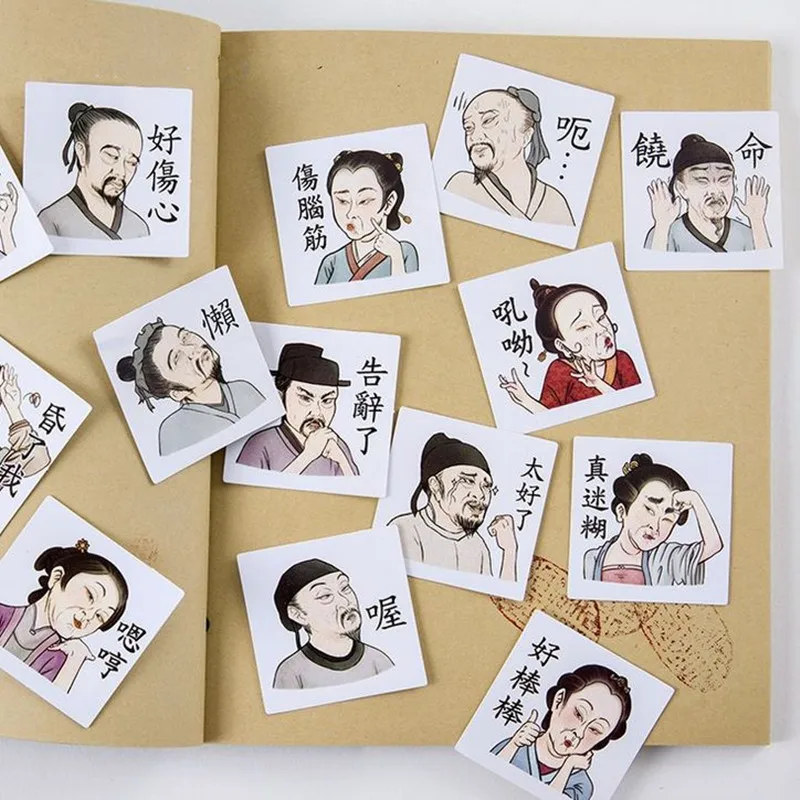 好傷心
傷腦筋
呃...
饒命
懶
告辭了
吼呦~
昏了我
太好了
真迷糊
嗯哼
喔
好棒棒